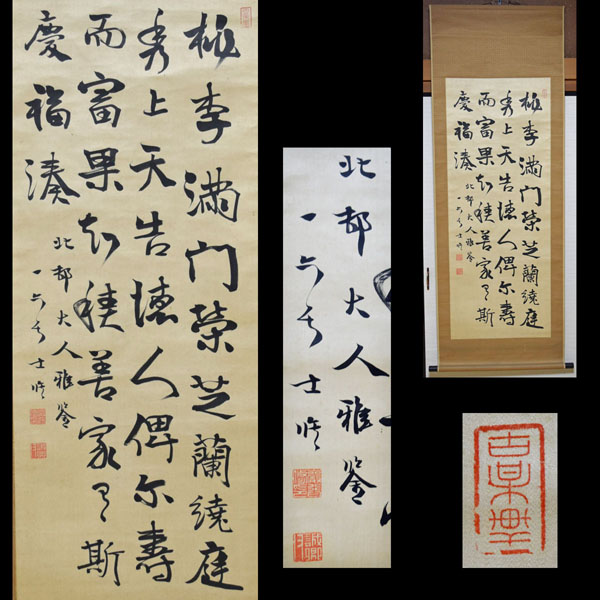 桃李滿門榮芝蘭繞庭
秀上天告德人俾尔壽
而富果知積善家有斯
慶福湊
北都大人雅鑒
一六居士修
北都大人雅鑒
一六居士修
桃李滿門榮芝蘭繞庭
秀上天告德人俾尔壽
而富果知積善家有斯
慶福湊
北都大人雅鑒
一六居士修